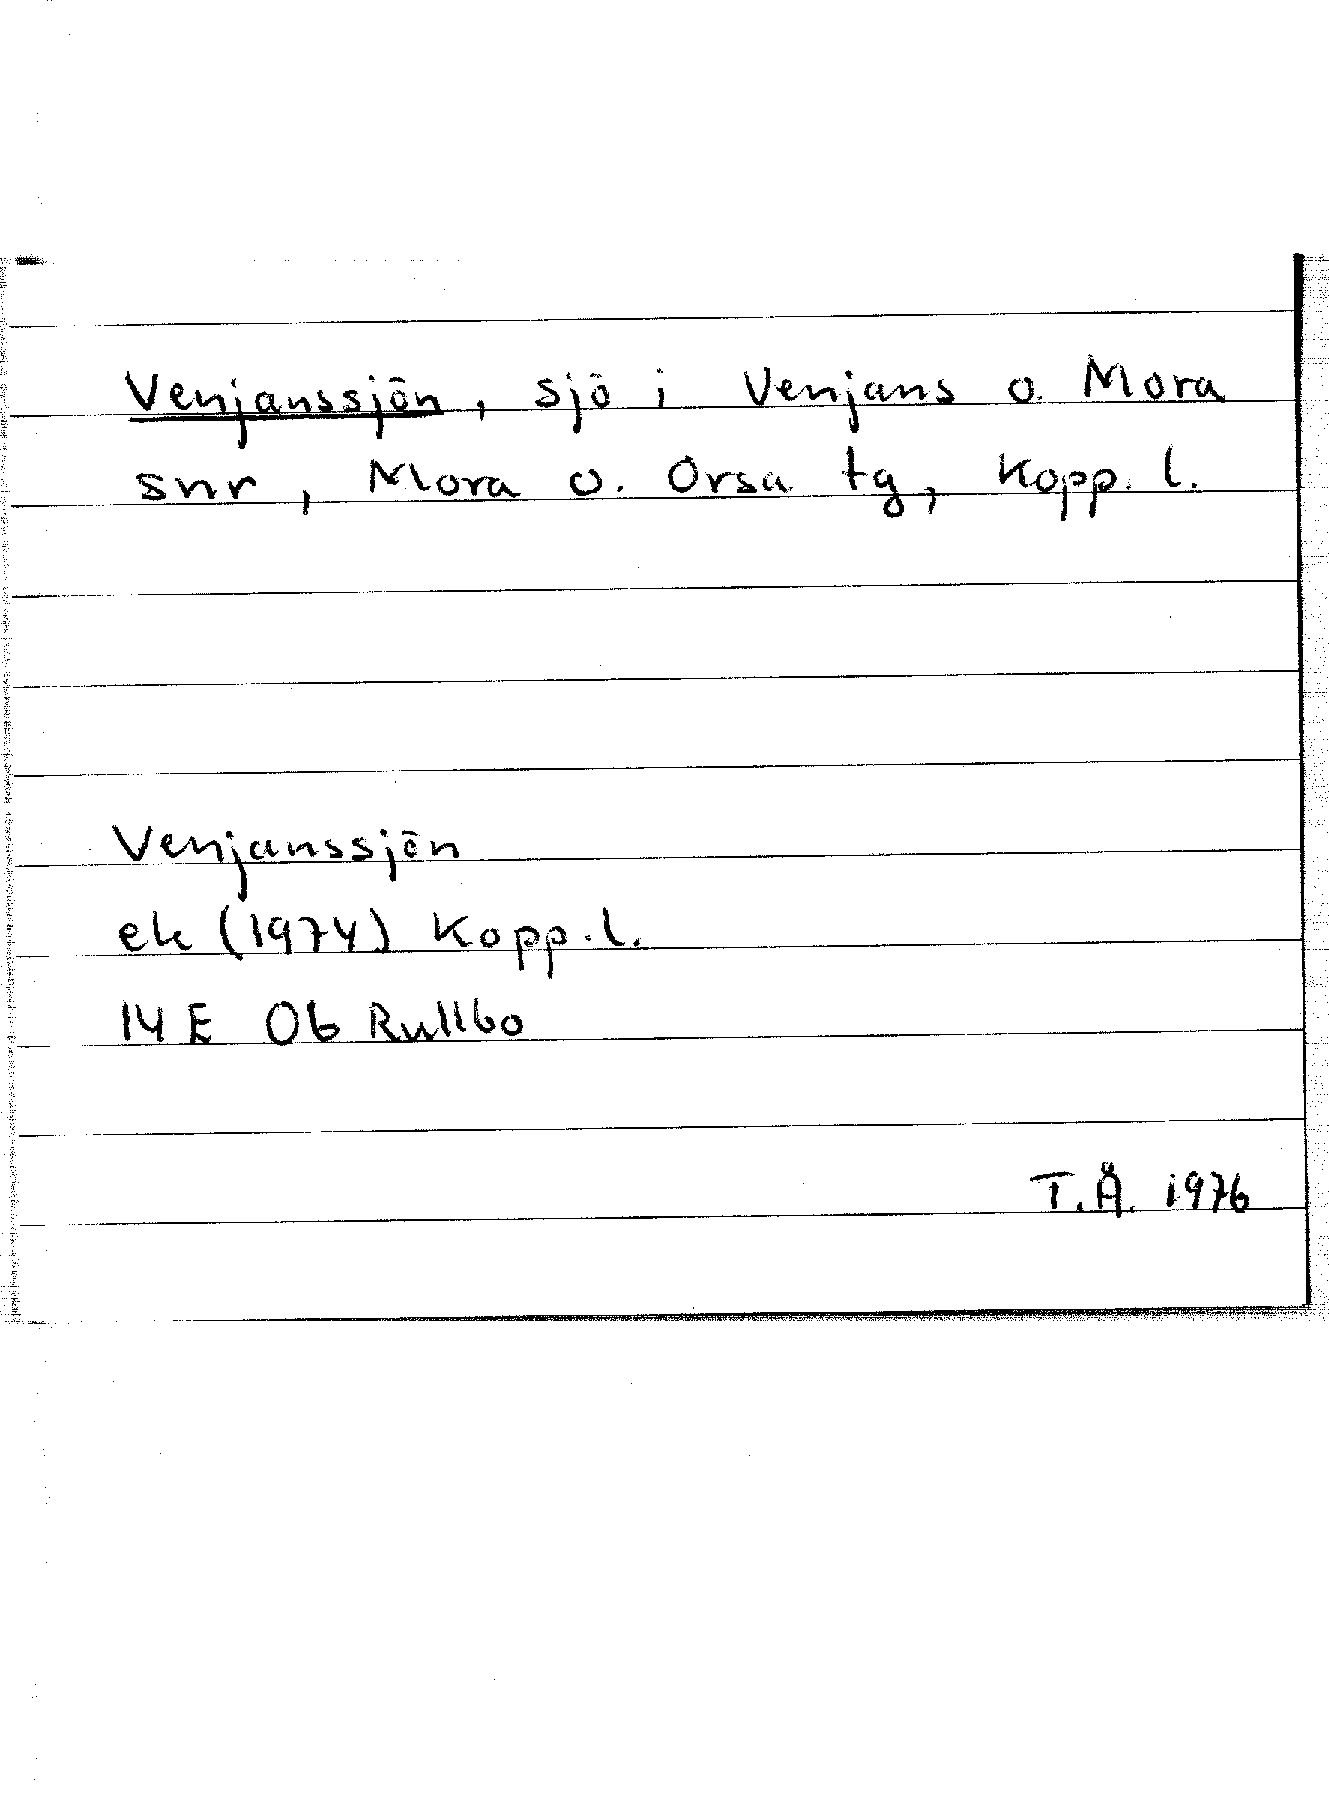 Venjanssjön, sjö i Venjans o. Mora
snr, Mora o. Orsa tg, Kopp. l.
Venjanssjön
ek (1974) Kopp. l.
14 E 0b Rullbo
T.Å. 1976